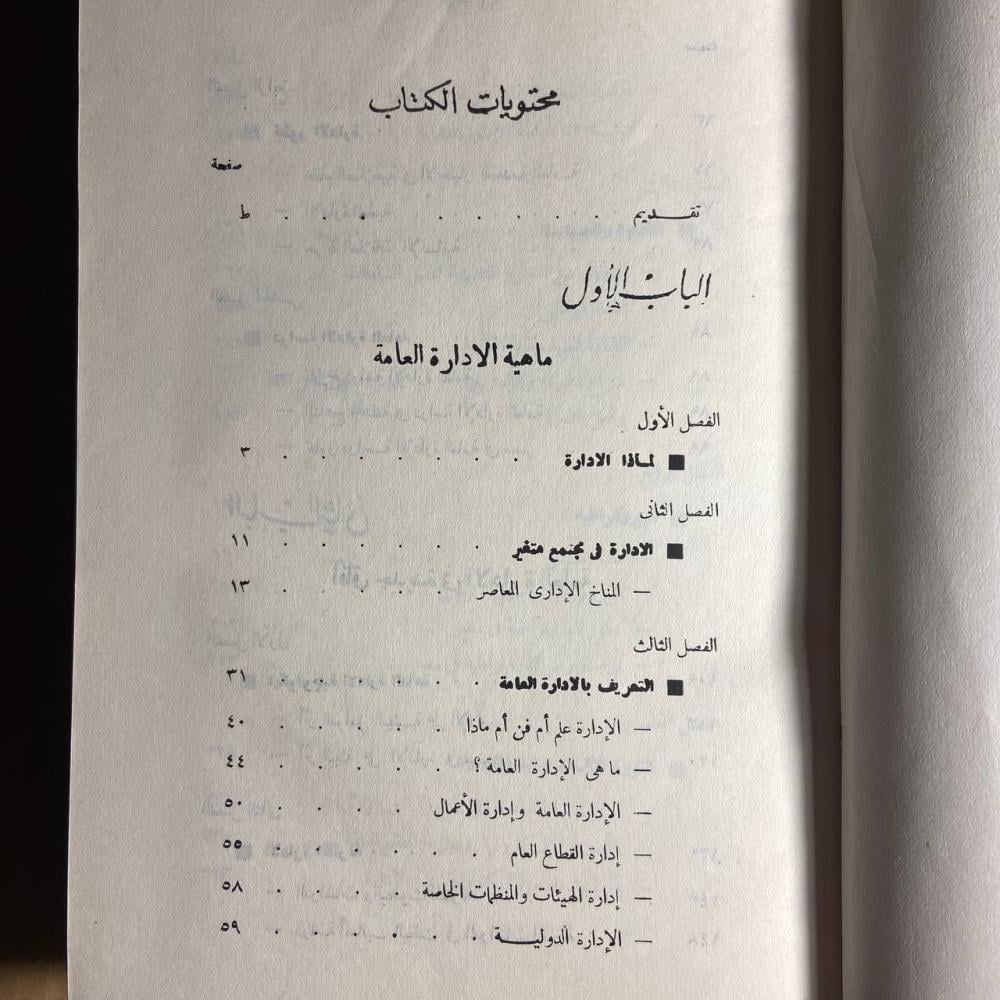 محتويات الكتاب
صفحة
تقديم . . . . . . . . ط
الباب الأول
ماهية الادارة العامة
الفصل الأول
■ لماذا الادارة . . . . . . . . ٣
الفصل الثانى
■ الادارة فى مجتمع متغير . . . . . . ١١
— المناخ الإدارى المعاصر . . . . . . ١٣
الفصل الثالث
■ التعريف بالادارة العامة . . . . . . ٣١
— الإدارة علم أم فن أم ماذا . . . . . ٤٠
— ما هى الإدارة العامة ؟ . . . . . ٤٤
— الإدارة العامة وإدارة الأعمال . . . . ٥٠
— إدارة القطاع العام . . . . . . ٥٥
— إدارة الهيئات والمنظمات الخاصة . . . . ٥٨
— الإدارة الدوليـــة . . . . . . ٥٩